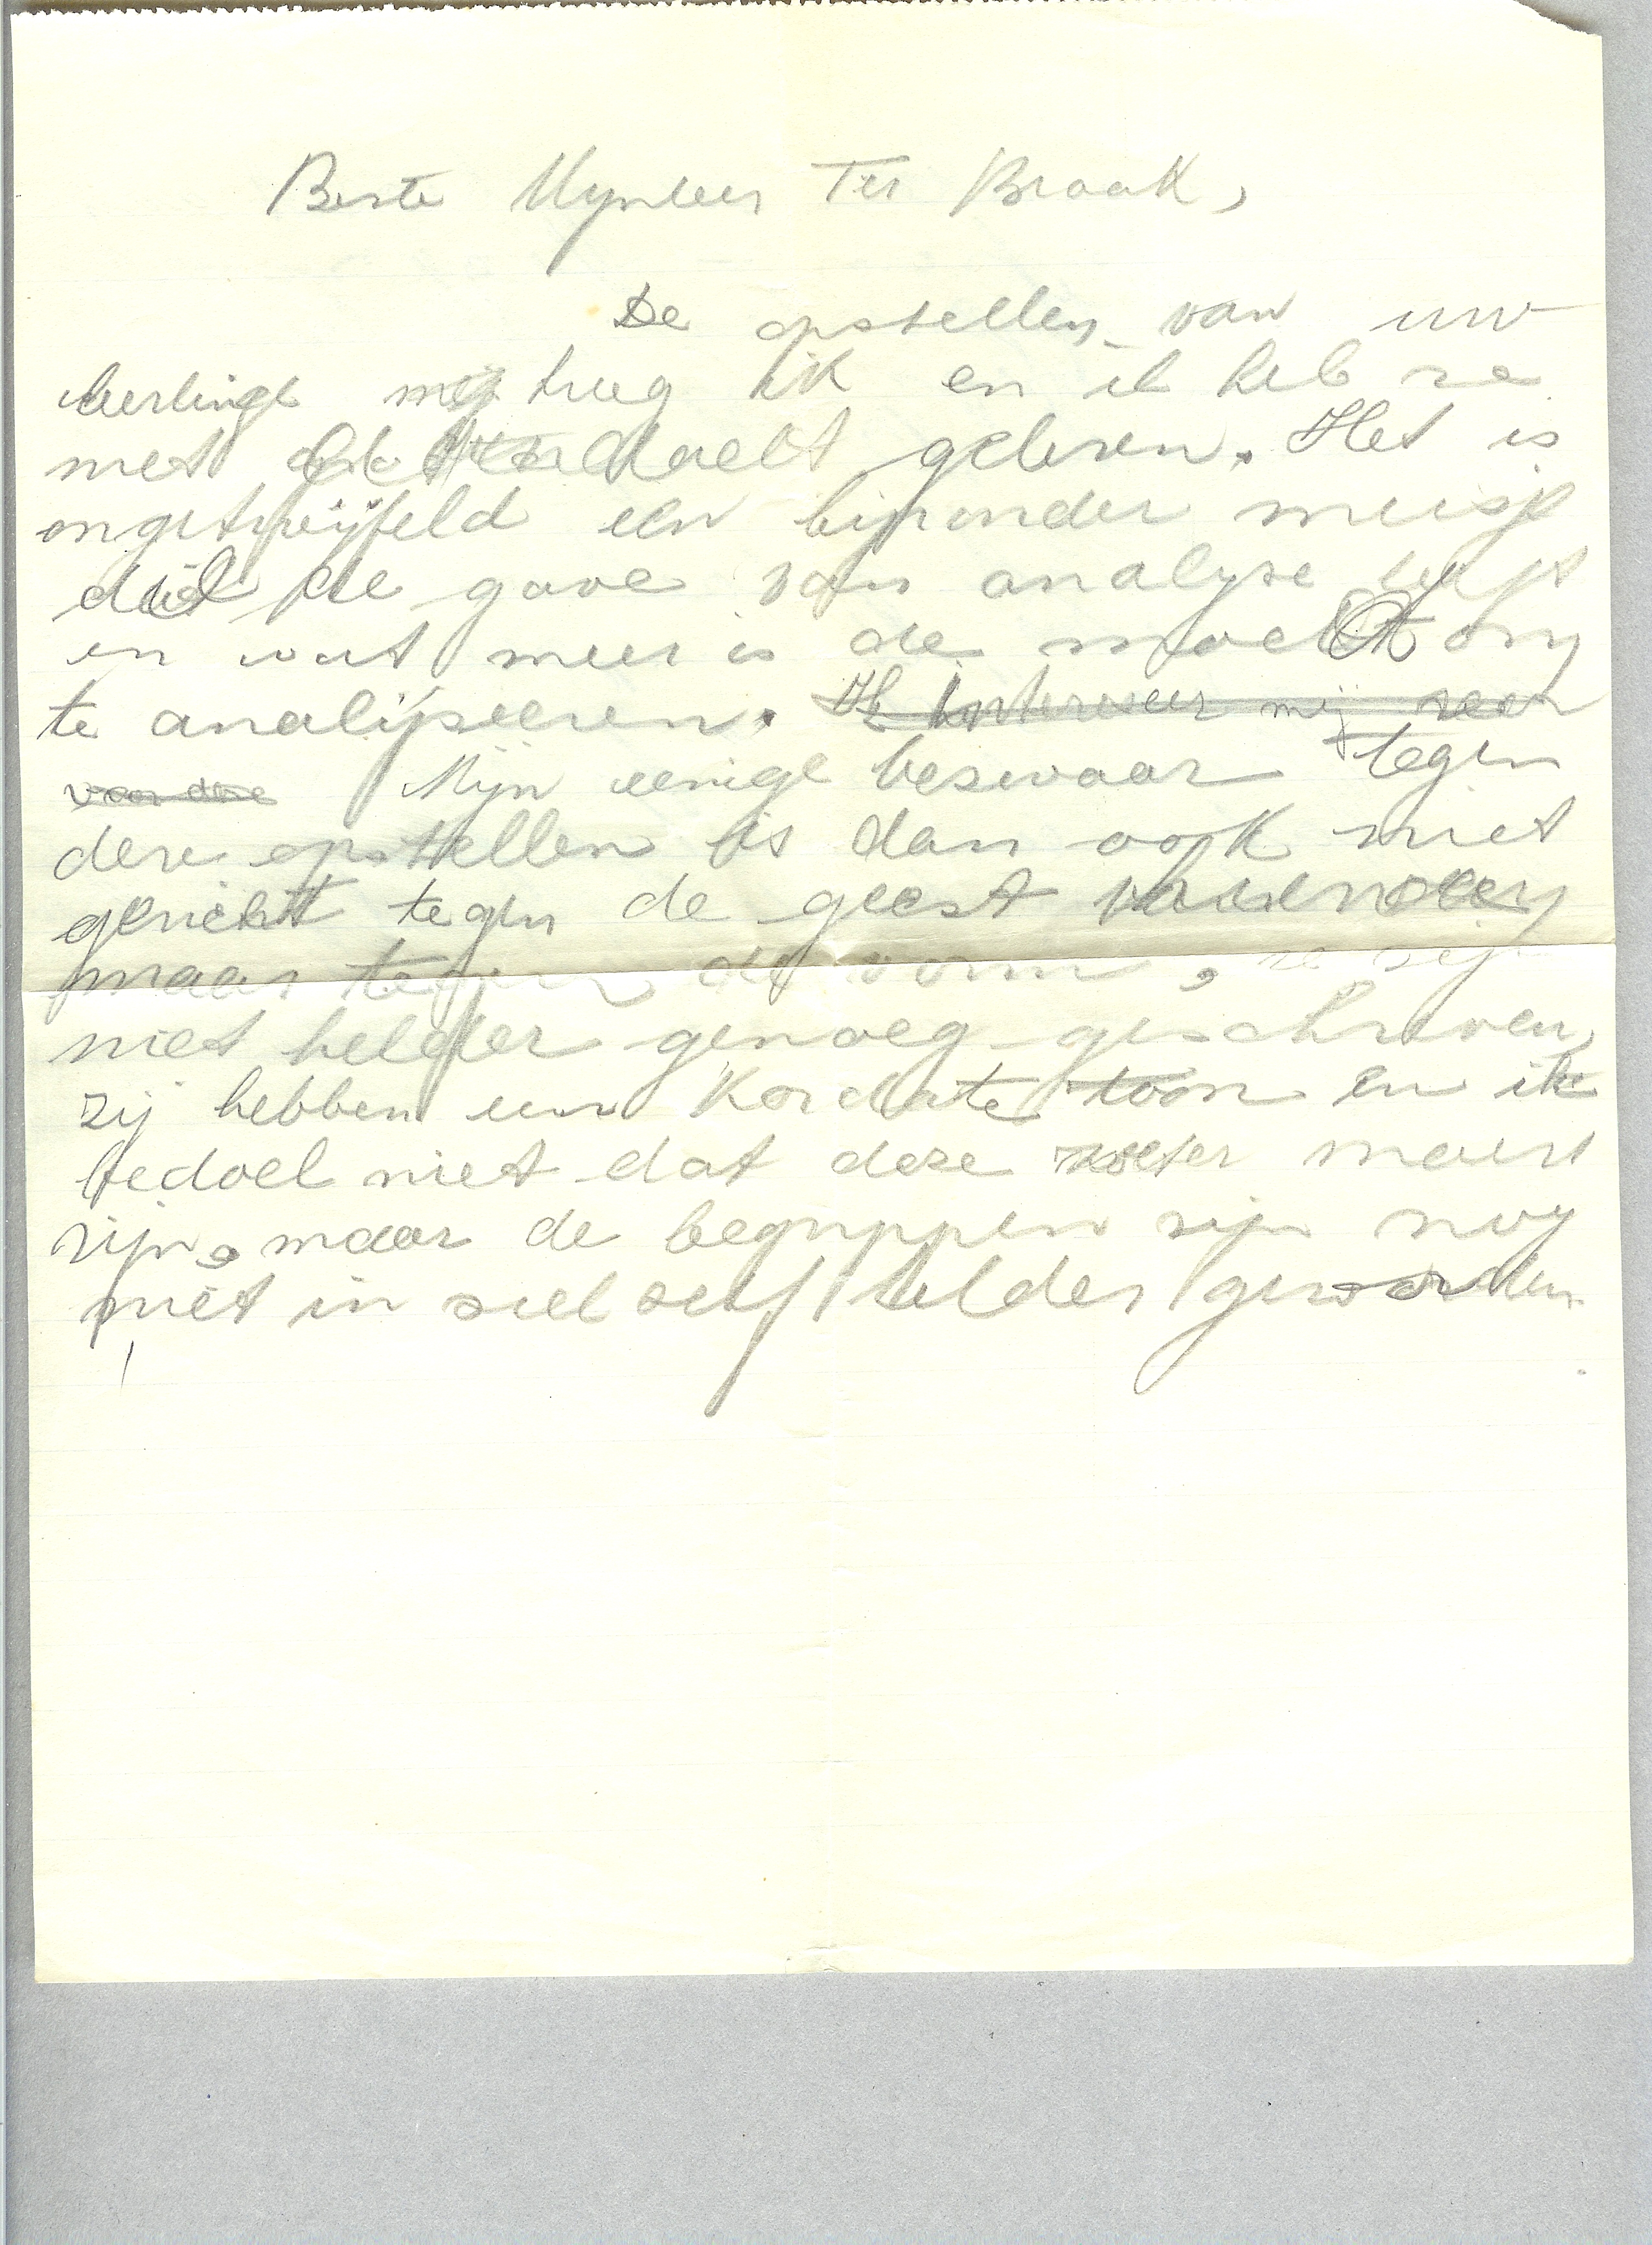 Beste Mijnheer Ter Braak,
De opstellen van uw
leerlinge kreeg ik en ik heb ze
met aandacht gelezen. Het is
ongetwijfeld een bijzonder meisje
die de gave van analyse heeft
en wat meer is de moed om
te analijseeren. Ik interesseer mij zeer
voor deze Mijn eenige bezwaar tegen
deze opstellen is dan ook niet
gericht tegen de geest
maar tegen de vorm, ze zijn
niet helder genoeg geschreven,
zij hebben een Kordate toon en ik
bedoel niet dat deze moest
zijn, maar de begrippen zijn nog
niet in zich zelf helder geworden.